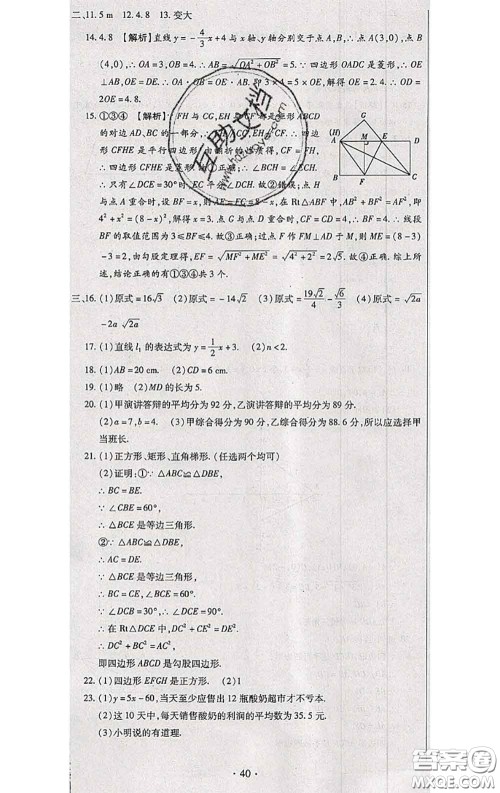 二、11. 5 m  12. 4.8  13. 变大
14. 4.8 【解析】直线 y=-4/3x+4 与 x 轴、y 轴分别交于点 A(3,0),点 B
(4,0),∴OA=3,OB=4. ∴AB=√(OA²+OB²)=5. ∵四边形 OADC 是菱形,∴OE
⊥AB,OE=DE. ∴OA·OB=OE·AB. 即 3×4=5×OE,解得 OE=2.4. ∴OD=
2OE=4.8.
15. ①③④ 【解析】∵FH 与 CG,EH 与 CF 都是矩形 ABCD
的对边 AD,BC 的一部分,∴FH∥CG,EH∥CF. ∴四边
形 CFHE 是平行四边形,由翻折的性质得,CF=FH,
∴四边形 CFHE 是菱形. 故①正确;∴∠BCH=∠ECH.
∴只有∠DCE=30°时,EC 平分∠DCH. 故②错误;点 H
与点 A 重合时,设 BF=x,则 AF=FC=8-x,在 Rt△ABF 中,AB²+BF²=AF²,即
4²+x²=(8-x)²,解得 x=3. 点 G 与点 D 重合时,CF=CD=4,∴BF=4. ∴线段
BF 的取值范围为 3≤BF≤4. 故③正确;过点 F 作 FM⊥AD 于 M,则 ME=(8-3)
-3=2,由勾股定理得,EF=√(MF²+ME²)=√(4²+2²)=2√5. 故④正确. 综上所
述,结论正确的有①③④共 3 个.
(H)
A
M
G
E
D
B
F
C
三、16. (1)原式=16√3  (2)原式=-14√2  (3)原式=19√2/4-√6/3  (4)原式=√(2a)
-2a√(2a)
17. (1)直线 l₁ 的表达式为 y=1/2x+3.  (2)n<2.
18. (1)AB=20 cm.  (2)CD=6 cm.
19. (1)略  (2)MD 的长为 5.
20. (1)甲演讲答辩的平均分为 92 分,乙演讲答辩的平均分为 89 分.
(2)a=7,b=4.  (3)甲综合得分为 90 分,乙综合得分为 88.6 分,所以应选择甲
当班长.
21. (1)正方形、矩形、直角梯形.(任选两个均可)
(2)证明:①∵△ABC≌△DBE,
∴BC=BE.
∵∠CBE=60°,
∴△CBE 是等边三角形.
②∵△ABC≌△DBE,
∴AC=DE.
∵△BCE 为等边三角形,
∴BC=CE,∠BCE=60°.
∵∠DCB=30°,∴∠DCE=90°.
∴在 Rt△DCE 中,DC²+CE²=DE².
∴DC²+BC²=AC²,
即四边形 ABCD 是勾股四边形.
22. (1)四边形 EFGH 是正方形.  (2)1
23. (1)y=5x-60,当天至少应售出 12 瓶酸奶超市才不亏本.
(2)这 10 天中,每天销售酸奶的利润的平均数为 35.5 元.
(3)小明说的有道理.
· 40 ·
互助文档
答案圈
MXQE.COM